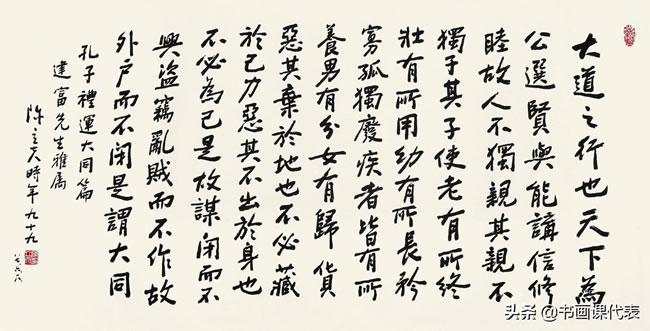 大道之行也天下為
公選賢與能講信修
睦故人不獨親其親不
獨子其子使老有所終
壯有所用幼有所長矜
寡孤獨廢疾者皆有所
養男有分女有歸貨
惡其棄於地也不必藏
於己力惡其不出於身也
不必為己是故謀閉而不
興盜竊亂賊而不作故
外戶而不閉是謂大同
孔子禮運大同篇
建富先生雅屬
陳立夫時年九十九
八七六八
头条 @书画课代表